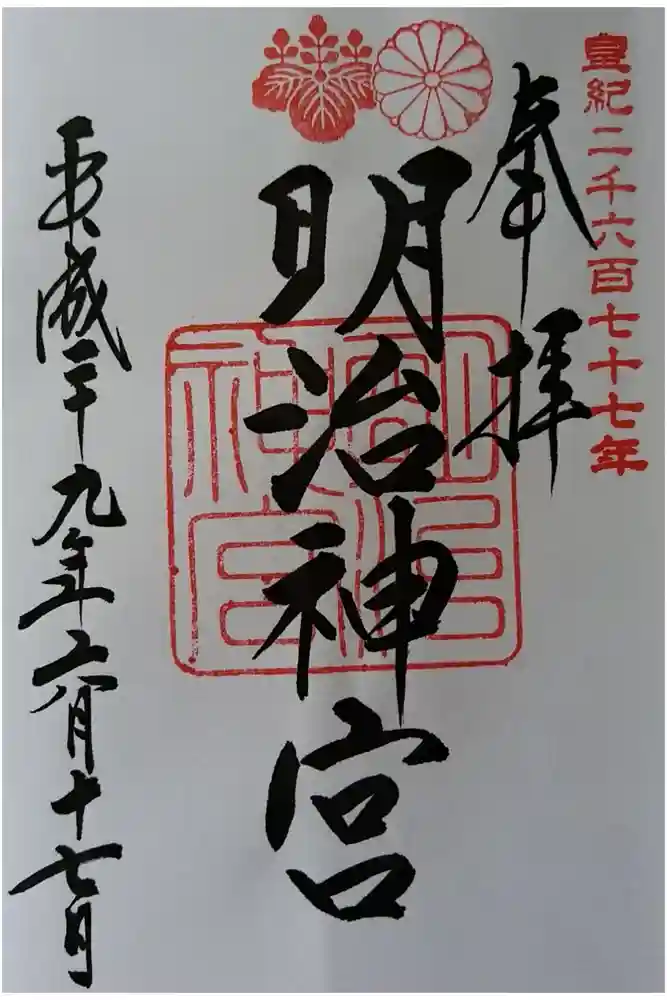 皇紀二千六百七十七年
奉拝
明治神宮
明治神宮
平成二十九年六月十七日